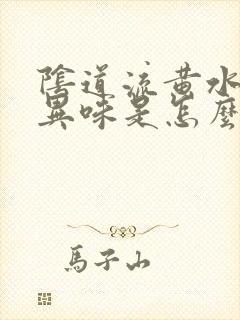 陰道流黃水
異味是怎麼
馬子山